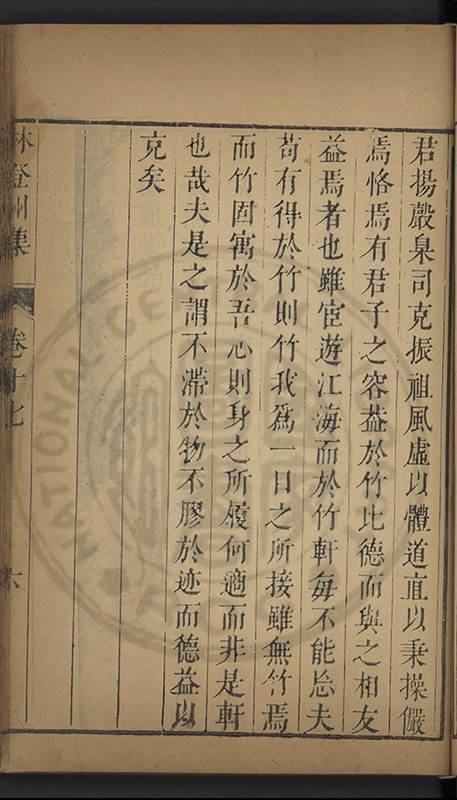 君揚嚴臬司克振祖風虛以體道直以秉操儼
焉恪焉有君子之容葢於竹比德而與之相友
益焉者也雖宦遊江海而於竹軒每不能忘夫
苟有得於竹則竹我為一日之所接雖無竹焉
而竹固寓於吾心則身之所履何適而非是軒
也哉夫是之謂不滯於物不膠於迹而德益以
克矣
林登州集
卷十七
六